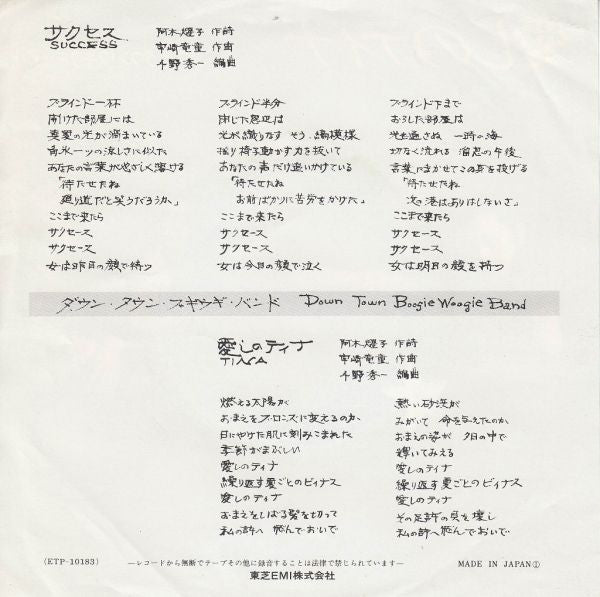 サクセス
SUCCESS
阿木燿子 作詩
宇崎竜童 作曲
千野秀一 編曲
ブラインド一杯
開けた部屋には
真夏の光が満まいている
香水一ツの涼しさに似た
あなたの言葉がやさしく溶ける
「待たせたね
廻り道だと笑うだろうか」
ここまで来たら
サクセース
サクセース
女は昨日の顔で待つ
ブラインド半分
閉じた窓辺は
光が織りなす そう 縞模様
揺り椅子動かす力を抜いて
あなたの声だけ追いかけている
「待たせたね
お前ばかりに苦労をかけた」
ここまで来たら
サクセース
サクセース
女は今日の顔で泣く
ブラインド下まで
おろした部屋は
光も通さぬ 一時の海
切なく流れる 溜息の午後
言葉にまかせてこの身を投げる
「待たせたね
次の港はありはしないさ」
ここまで来たら
サクセース
サクセース
女は明日の顔を持つ
ダウン・タウン・ブギウギ・バンド Down Town Boogie Woogie Band
愛しのティナ
TINA
阿木燿子 作詩
宇崎竜童 作曲
千野秀一 編曲
燃える太陽が
おまえをブロンズに変えるのか
日にやけた肌に刻みこまれた
季節がまぶしい
愛しのティナ
繰り返す夏ごとのビィナス
愛しのティナ
おまえをしばる髪を切って
私の許へ 飛んでおいで
熱い砂浜が
みがいて 命を与えたのか
おまえの姿が 夕日の中で
輝いてみえる
愛しのティナ
繰り返す夏ごとのビィナス
愛しのティナ
その足許の貝を壊し
私の許へ 飛んでおいで
(ETP-10183)
—レコードから無断でテープその他に録音することは法律で禁じられています—
MADE IN JAPAN①
東芝EMI株式会社